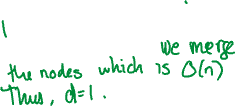 we merge
the nodes which is O(n)
Thus, d=1.